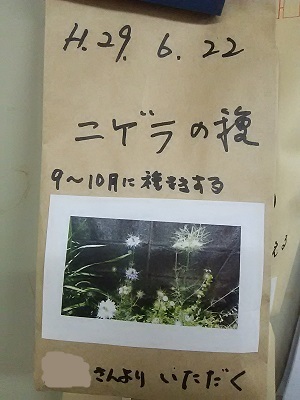 H.29.6.22
ニゲラの種
9～10月に種まきする
さんより いただく
える